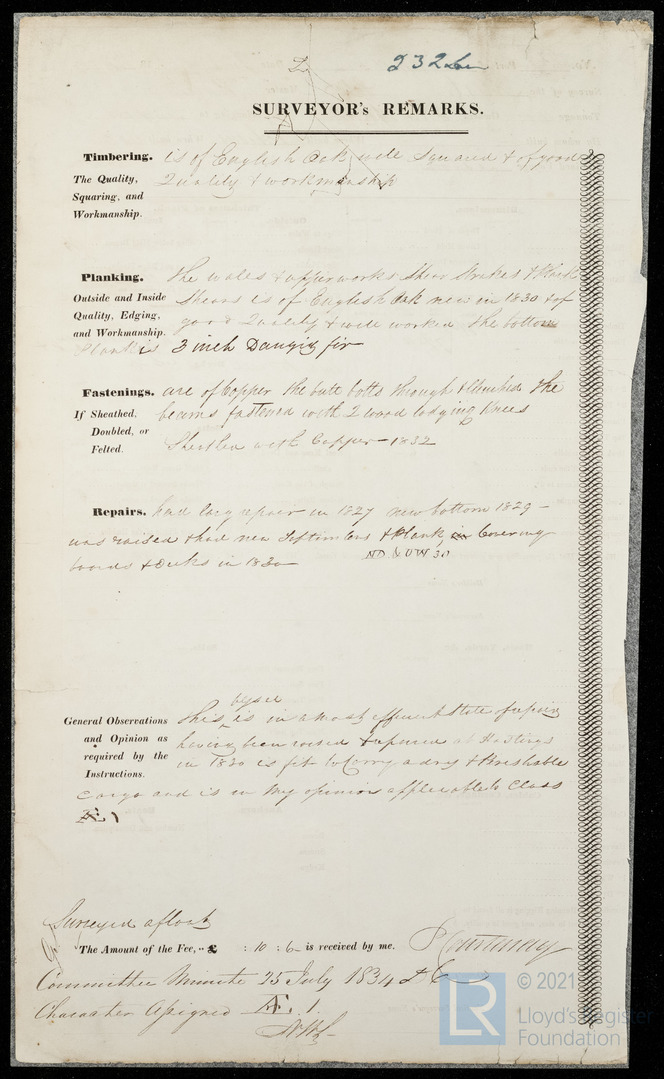 232 Ln
SURVEYOR's REMARKS.
Timbering. is of English Oak well squared & of good
The Quality, Quality & workmanship
Squaring, and
Workmanship.
Planking. the wales & upperworks Shear Strakes & Plank
Outside and Inside Shears is of English Oak new in 1830 & of
Quality, Edging, good Quality & well worked the bottom
and Workmanship.
Plank is 3 inch Danzig fir
Fastenings. are of Copper the butt bolts through & Clenched the
If Sheathed, beams fastened with 2 wood lodging Knees
Doubled, or
Felted. Sheathed with Copper - 1832
Repairs. had larg repair in 1827 new bottom 1829 -
was raised & had new Toptimbers & Plank, in Covering
boards & Decks in 1830 ND & UW 30
General Observations this vessel is in a most efficient State of repair
and Opinion as having been raised & repaired at Hastings
required by the in 1830 is fit to Carry a dry & Perishable
Instructions.
Cargo and is in my opinion applicable to Class
Æ 1
Surveyed afloat
The Amount of the Fee, .. £ : 10 : 6 - is received by me. P Courtenay
Committee Minute 25 July 1834
Character assigned Æ. 1.
© 2021
LR Lloyd's Register
Foundation